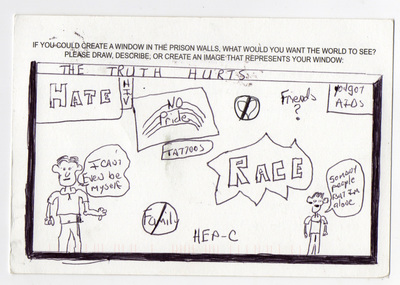 IF YOU COULD CREATE A WINDOW IN THE PRISON WALLS, WHAT WOULD YOU WANT THE WORLD TO SEE?
PLEASE DRAW, DESCRIBE, OR CREATE AN IMAGE THAT REPRESENTS YOUR WINDOW:
THE TRUTH HURTS
HATE
HIV
NO
Pride
Friends
?
you got
AIDS
TATTOOS
RACE
I CAN'T
EVEN BE
MYSELF
So many
people
But I'm
alone
Family
HEP-C